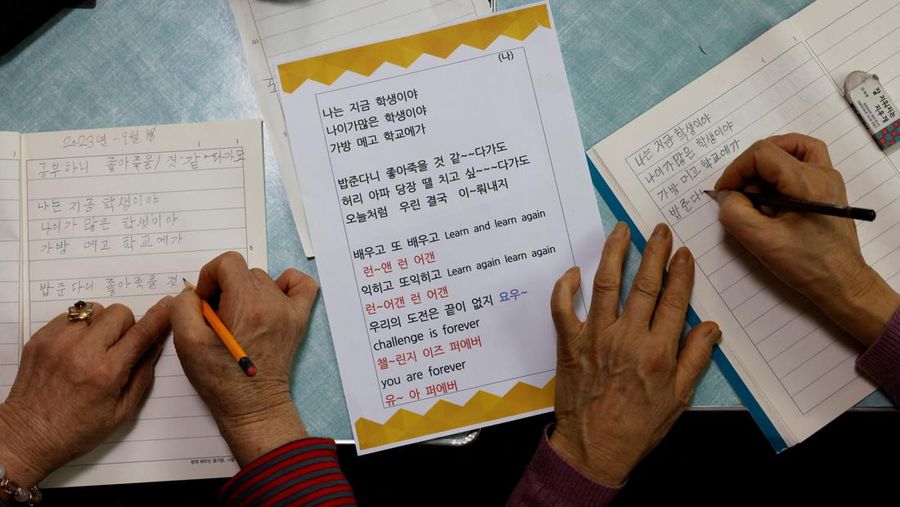 2023년 - 9월
공부하니 좋아죽을/ 것 같~~다가도
나는 지금 학생이야
나이가 많은 학생이야
가방 메고 학교에가
밥준다니 좋아죽을 것
(나)
나는 지금 학생이야
나이가많은 학생이야
가방 메고 학교에가
밥준다니 좋아죽을 것 같~~다가도
허리 아파 당장 땔 치고 싶~~~다가도
오늘처럼 우린 결국 이~뤄내지
배우고 또 배우고 Learn and learn again
런~앤 런 어갠
익히고 또익히고 Learn again learn again
런~어갠 런 어갠
우리의 도전은 끝이 없지 요우~
challenge is forever
챌~린지 이즈 퍼에버
you are forever
유~ 아 퍼에버
나는 지금 학생이야
나이가많은 학생이야
가방 메고 학교에가
밥준다